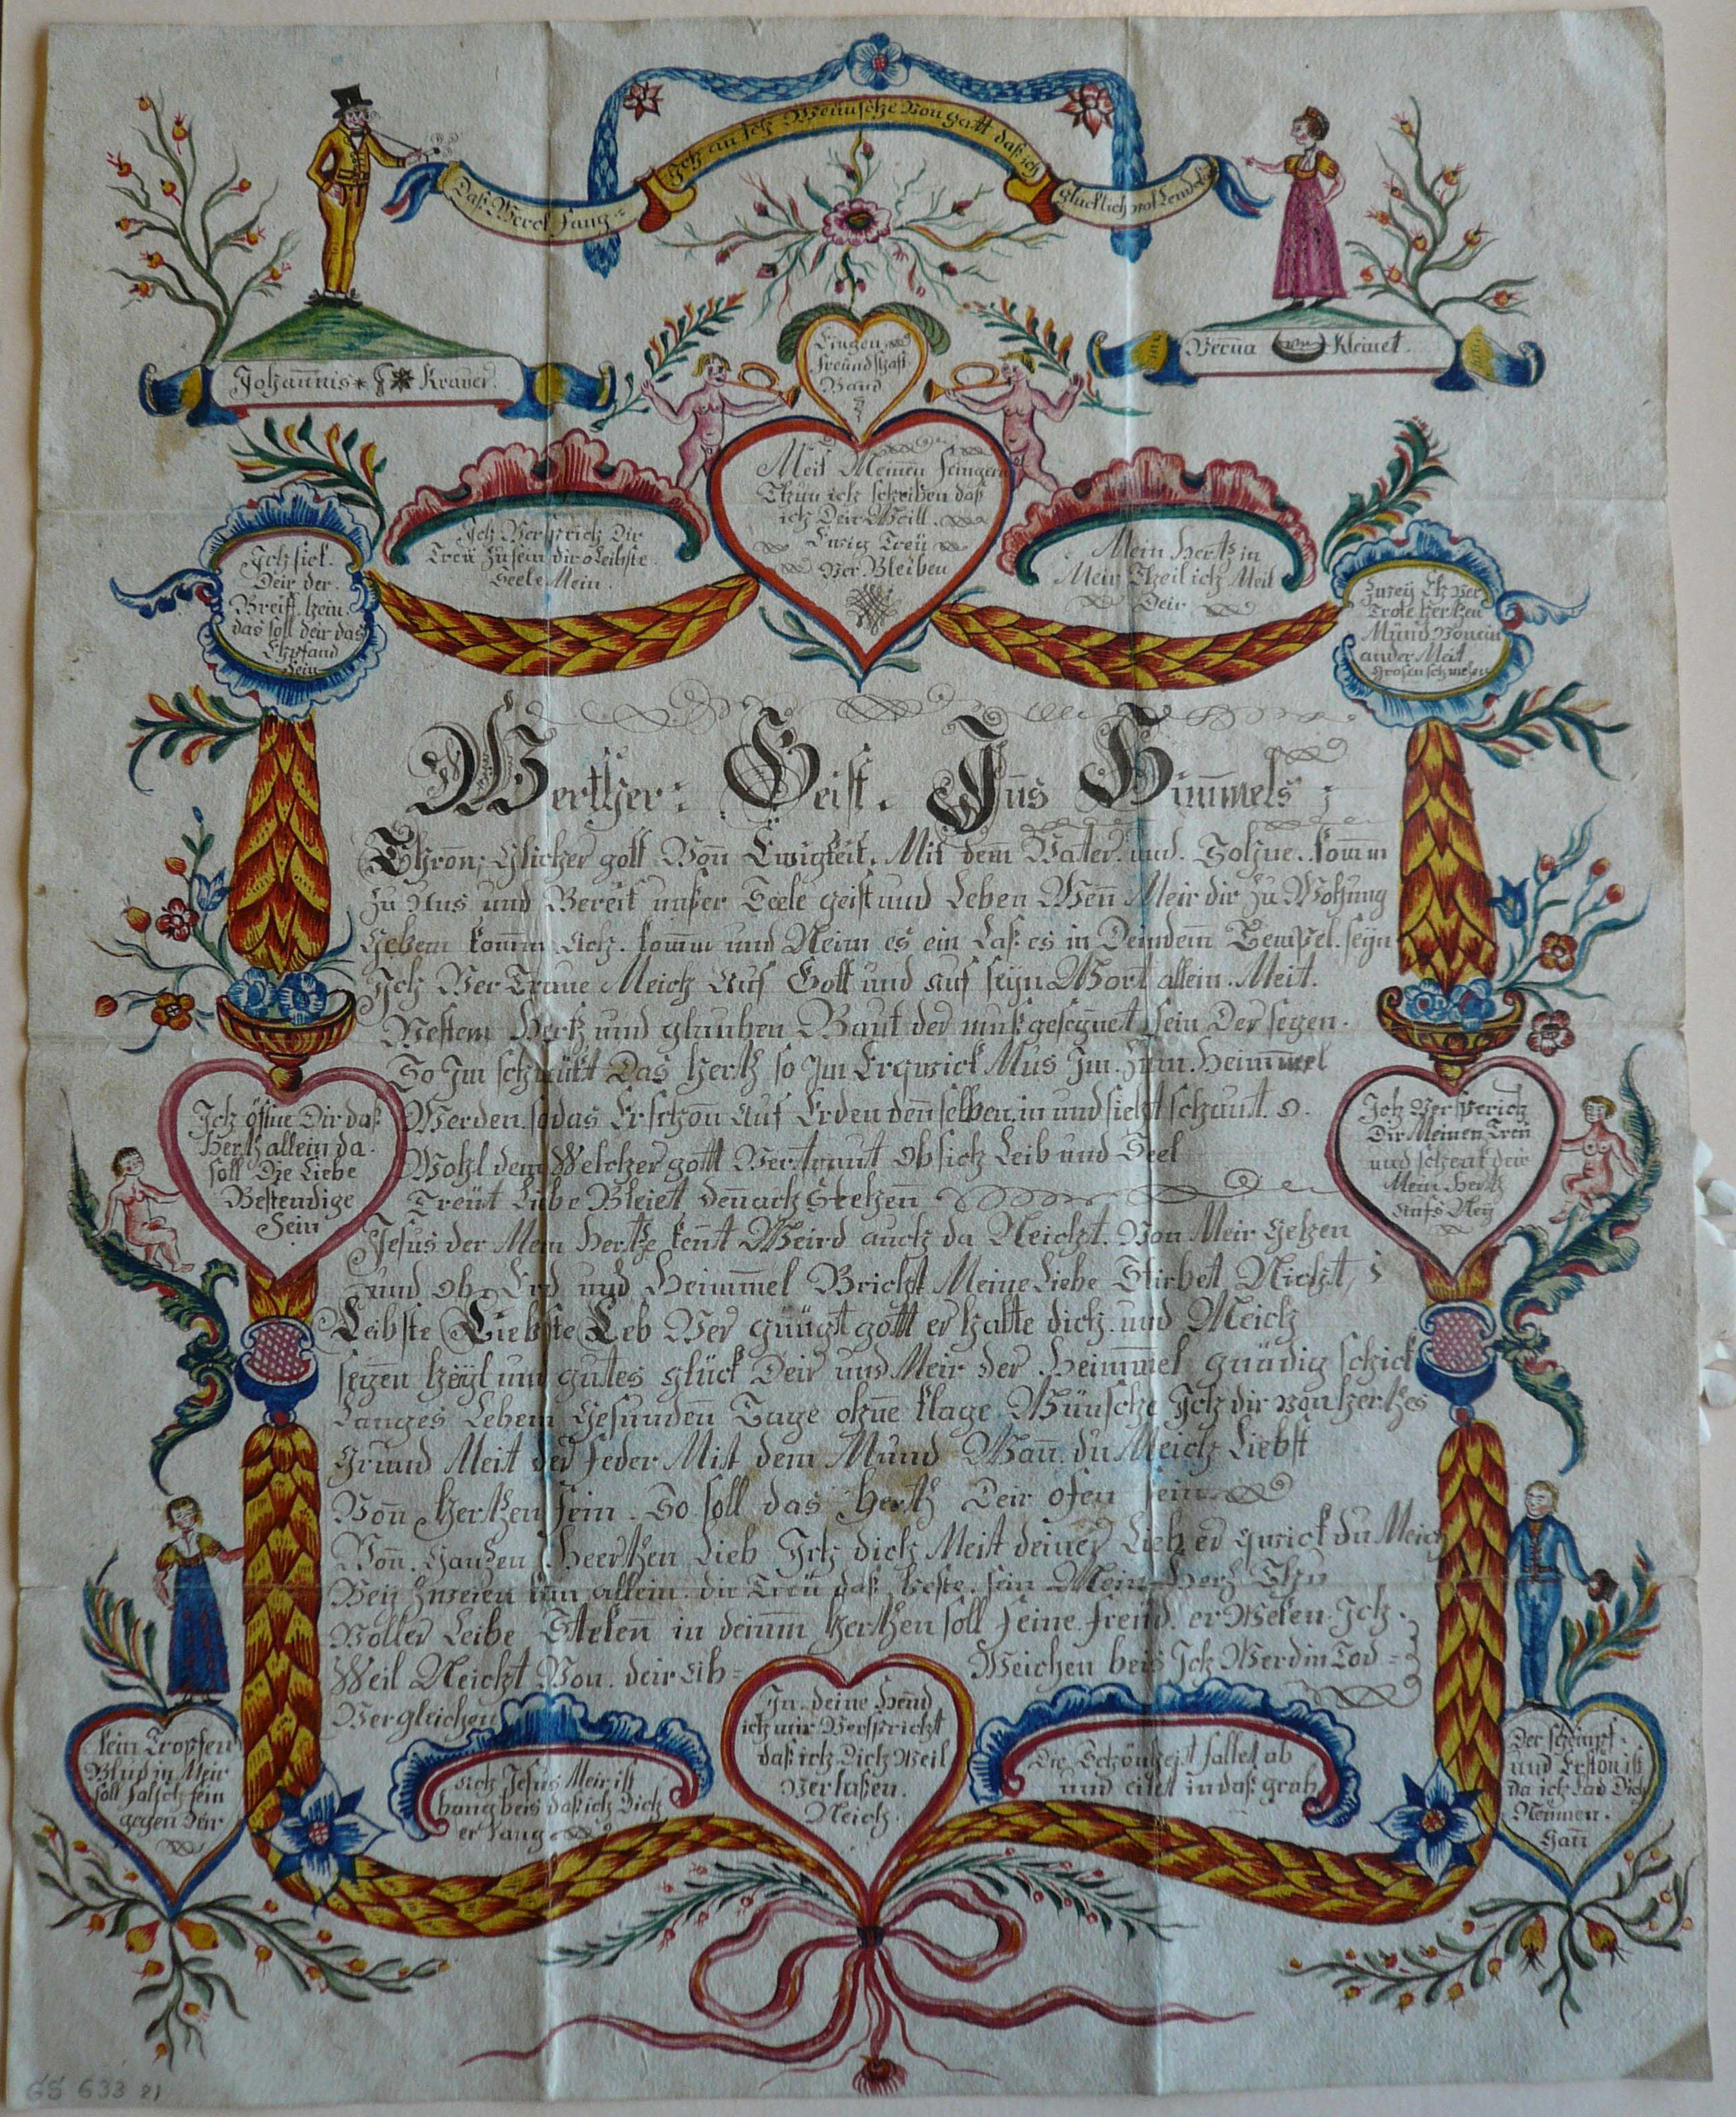 Daß Werck fang
Ich an Ich Weünsche Von gatt daß ich
glücklich vol
Johannis Kraüer.
Verena Kleinet.
Eingen
freündschaft
Band
Meit Meinen feingern
Thun ich schreiben daß
ich Deir Weill
Ewig Treü
Ver Bleiben
Ich Versprich Dir
Treü zu sein dir o Leibste
Seele Mein.
Mein Hertz in
Meir Theil ich Meit
Deir
Ich
Deir der
Breiff hein
das soll deir das
Ehpfand
sein
Zweÿ Eh Ver
Trote hertzen
Münd Von ein
ander Meit
Grosen schmertzen
Werther: Geist. Jns Himmels;
Thron; Glicher gott Vonn Ewigkeit. Mit dem Vater und Sohne. komm
zu Uns und Bereit unßer Seele geist und Leben Wenn Meir dir zu Wohnung
Geben komm Ach. komm und Neim es ein Laß es in Deindem Tempel seÿn
Ich Ver Traue Meich Auf Gott und auf seÿn Wort allein. Meit.
Vestem Hertz und glauben Baut der muß gesegnet sein Der segen.
So Im schmükt Das Hertz so Im Erqwick Mus Im. zum. Heimmel
Werden. so das Er schon Auf Erden denn selben in und sieht schaut. o.
Wohl dem Welcher gott Vertraut Ob sich Leib und Seel
Treüt Liebe Bleiet dennach Stehenn
Jesus der Mein Hertze kennt Weird auch da Neicht. Von Meir Gehen
und ob. Erd und Heimmel Bricht Meine Liebe Stirbet Nicht,
Leibste Liebste Leb Ver gnügt gott er halte dich. und Meich
segen heÿl und gutes glück Deir und Meir der Heimmel gnädig schick
Langes Leben Gesunden Tage ohne klage Wünsche Ich dir von hertzes
Grund Meit der feder Mit dem Mund Wann du Meich Liebst
Vonn Hertzen fein. So soll das Hertz Deir ofen sein
Vonn. Gantzen Heertzen Lieb Ich dich Meit deiner Lieb er qwick du Meich
Beÿ zweien kan allein. die Treü daß beste. sein Mein Hertz Thu
Voller Leibe Steken in deinm Hertzen soll seine freüd. er Weken Ich.
Weil Neicht Von. deir
Weichen beis Ich Werd in Tod
Vergleichen
Ich öffne Dir daß
Hertz allein da
soll Die Liebe
Bestendige
Sein
Ich Versperich
Dir Meinen Treü
und schenk deir
Mein Hertz
Aufs Neÿ
kein Tropfen
Blud in Meir
soll falsch sein
gegen Deir
Ach Jesus Meir ist
bang beis daß ich Dich
er Lang
In deine Hend
ich mir Verspricht
daß ich Dich Weil
Verlaßen
Neich.
Die Schönheit fallet ab
und eilet in daß grab
Der schimpf
und
da ich Dich
Nemmen.
Han
GS 633 21